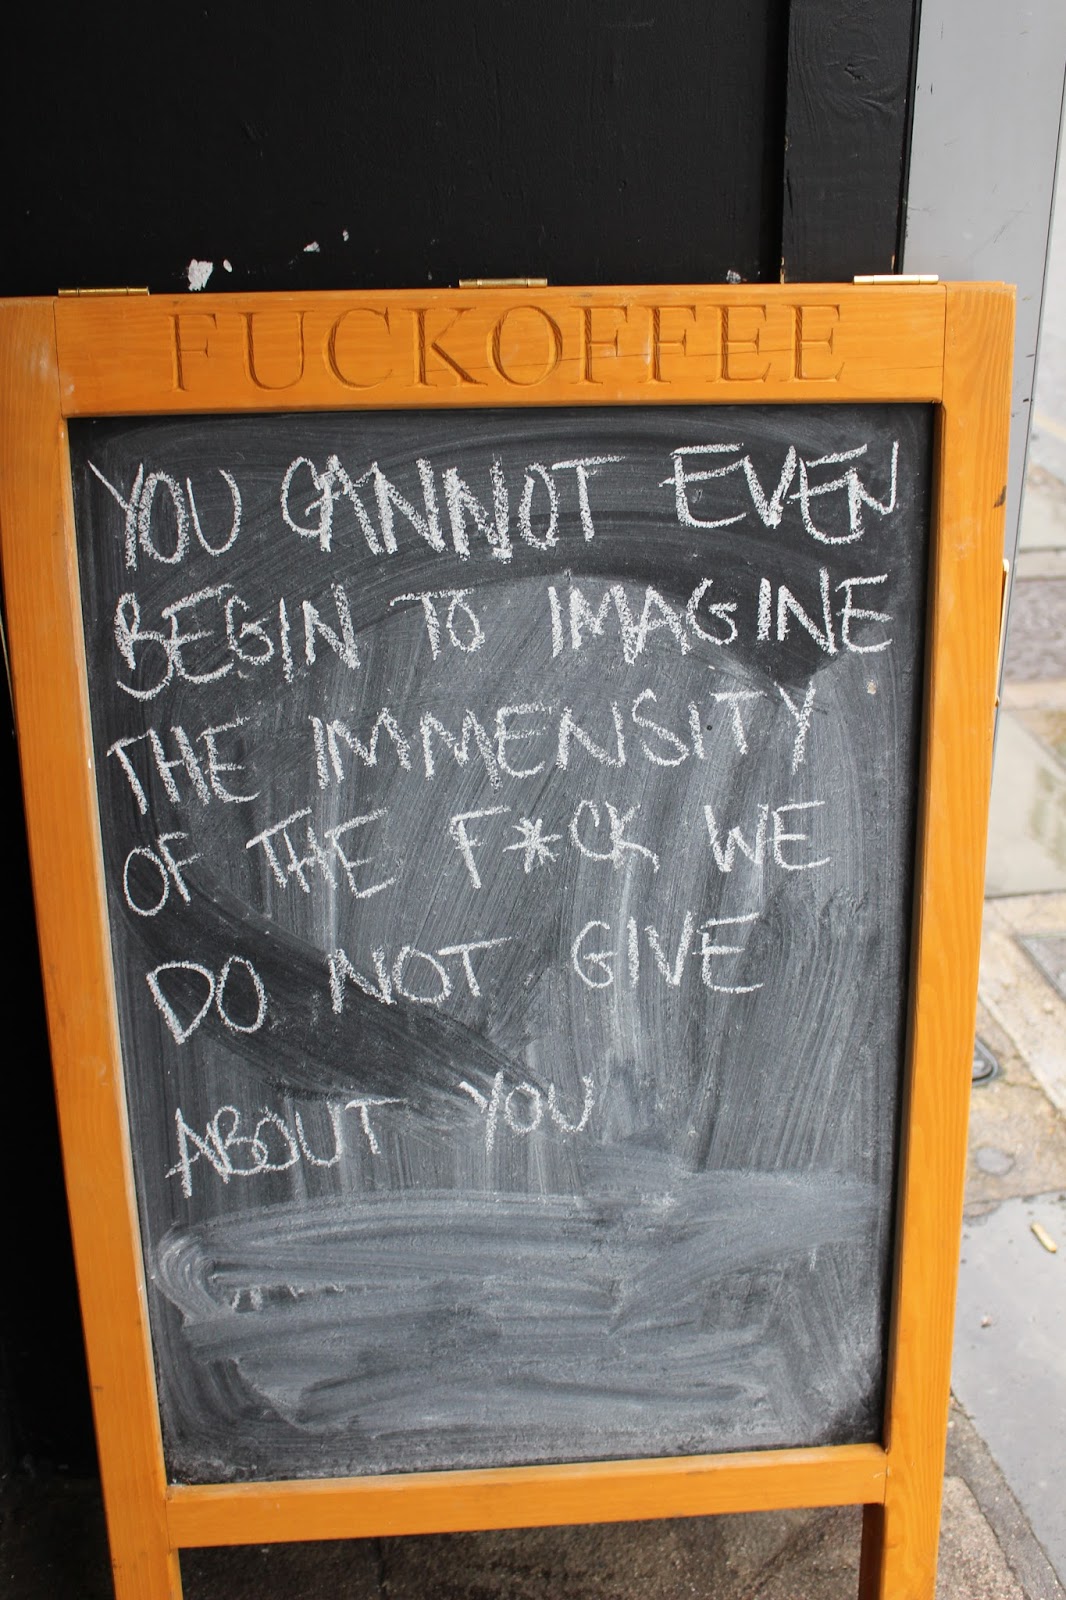 FUCKOFFEE
YOU CANNOT EVEN
BEGIN TO IMAGINE
THE IMMENSITY
OF THE F*CK WE
DO NOT GIVE
ABOUT YOU